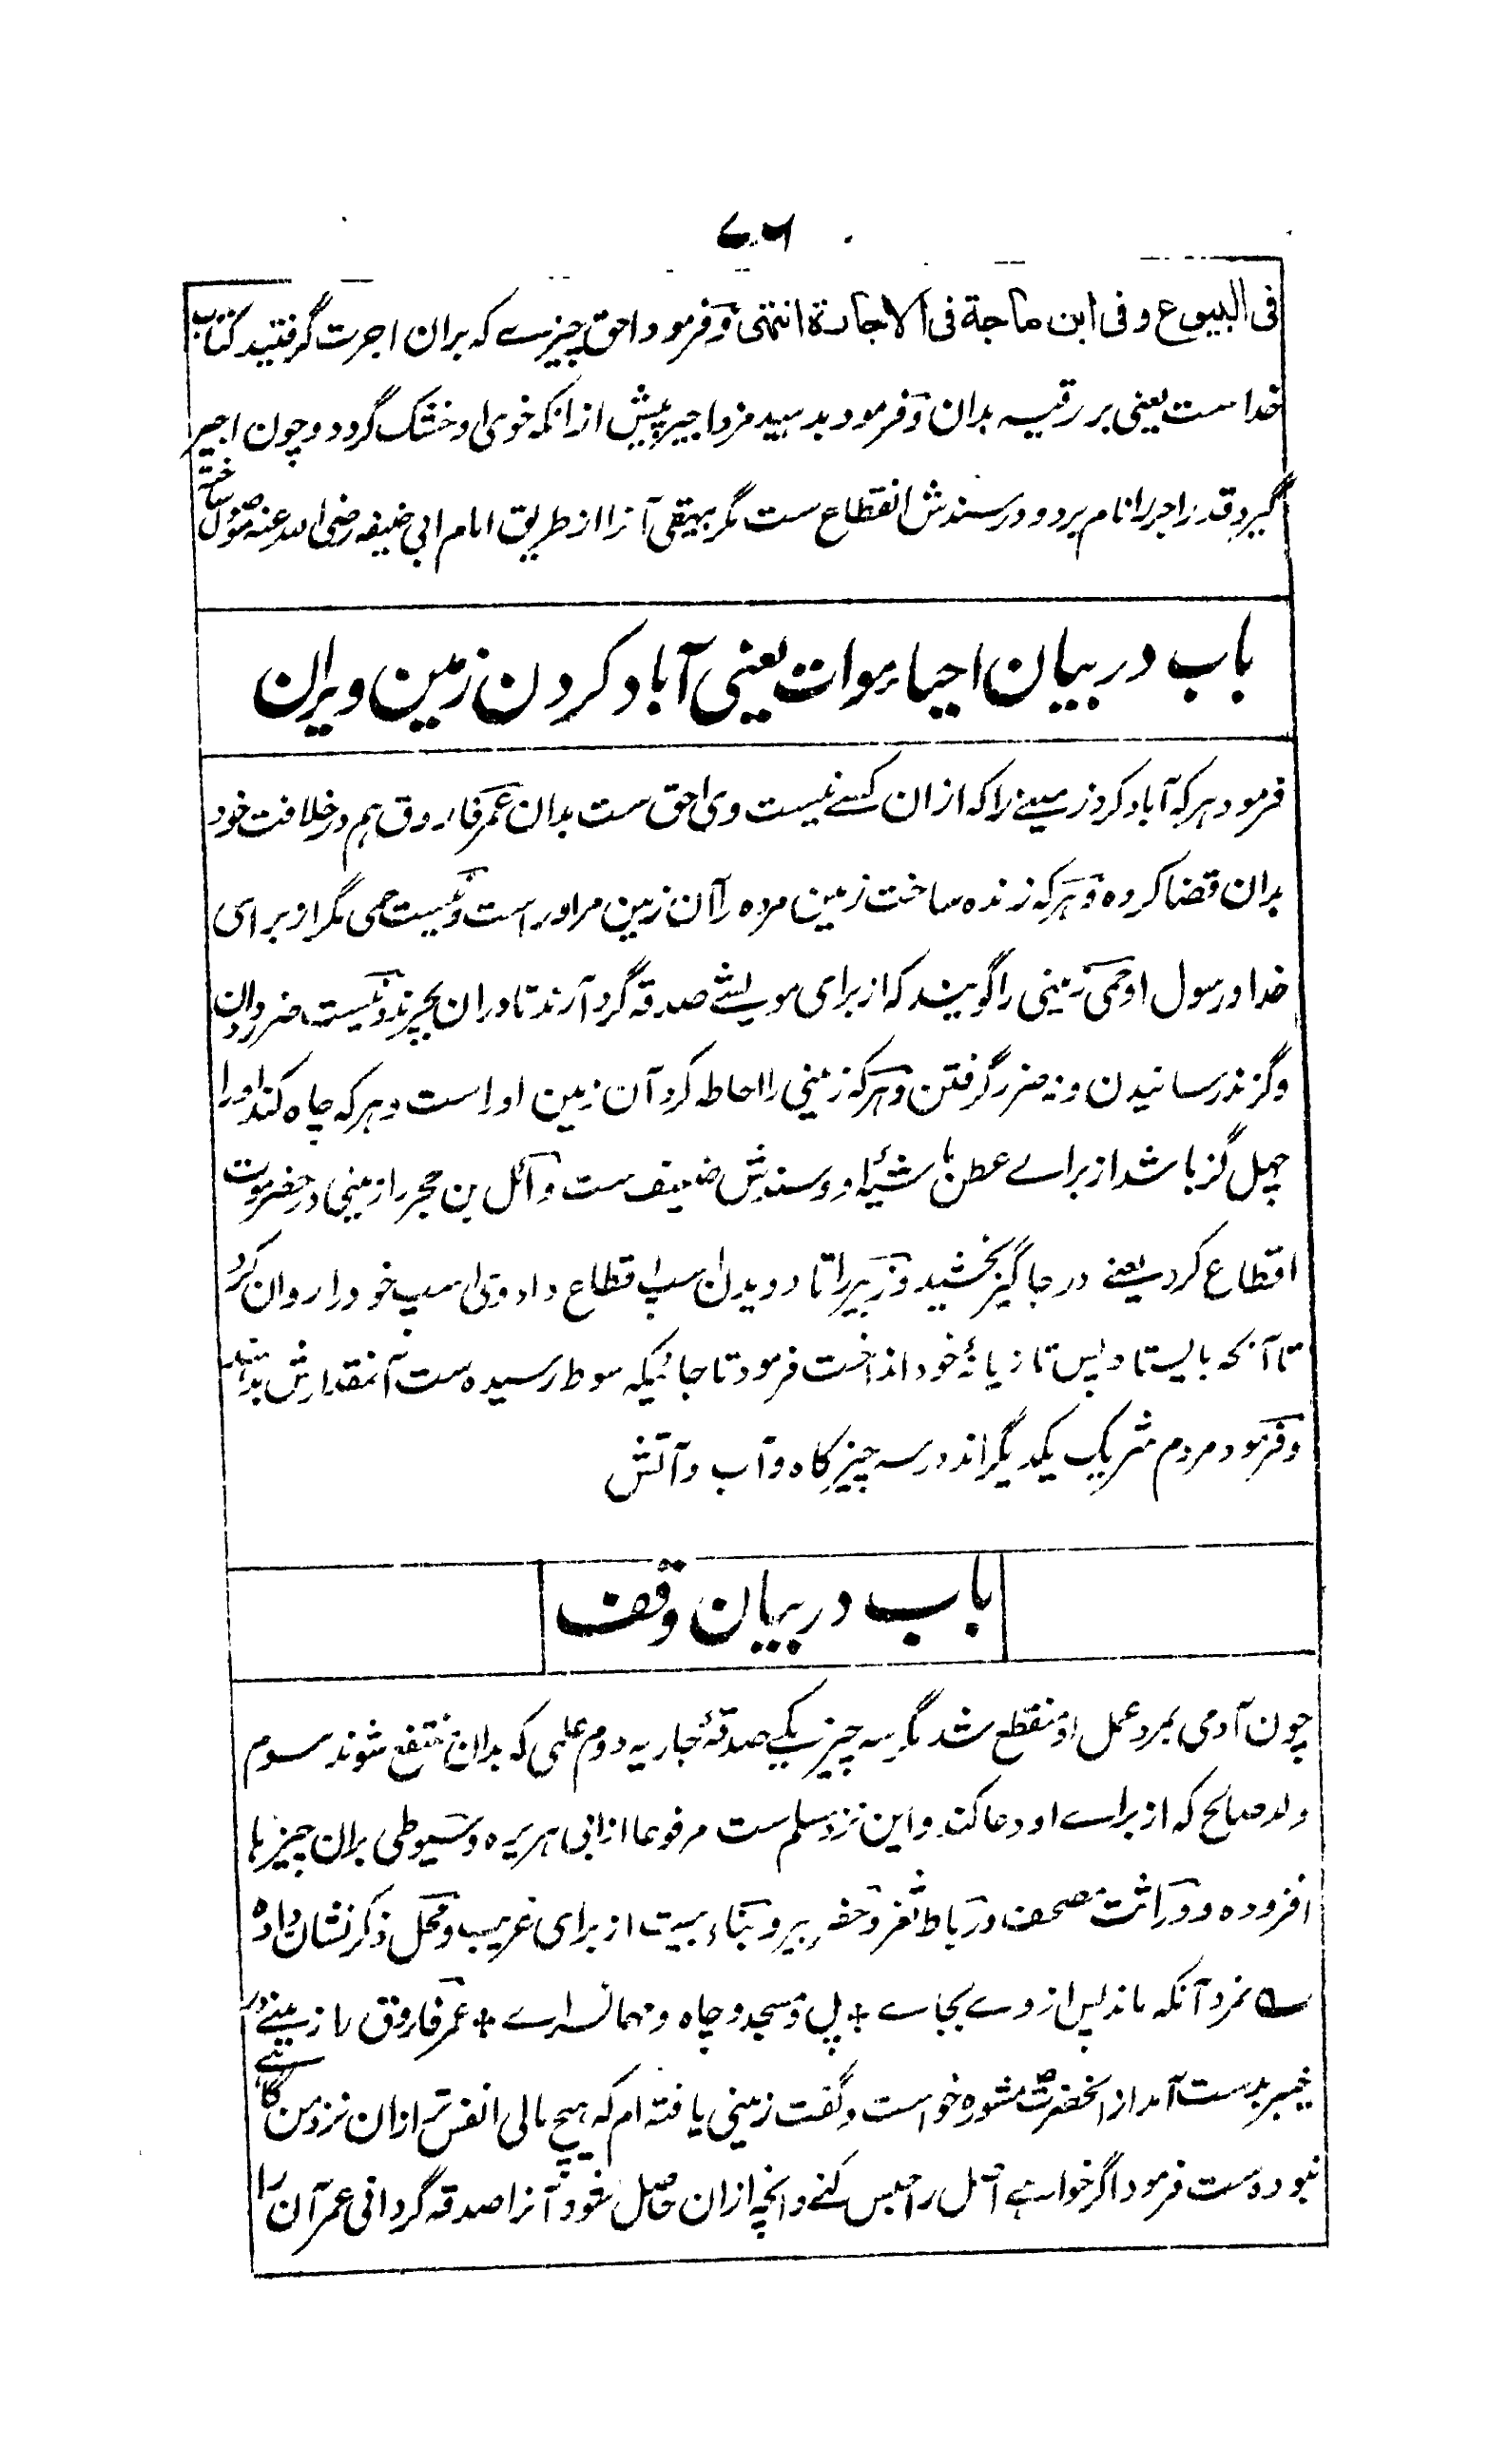 ۷۶
فی البیوع وفی ابن ماجة فی الاجارة انتهی وفرمود احق چیزے که بران اجرت گرفتید کتاب
خداست یعنی بر رقیه بدان وفرمود بدهید مزد اجیر پیش ازانکه خوی او خشک گردد وچون اجیر
گیرد قدر اجر را نام برد ودر سندش انقطاع ست مگر بیهقی آنرا از طریق امام ابی حنیفه رضی الله عنه موصول ساخته
باب در بیان احیاء موات یعنی آباد کردن زمین ویران
فرمود هرکه آباد کرد زمینے را که ازان کسے نیست وی احق ست بدان عمر فاروق هم در خلافت خود
بدان قضا کرده وهرکه زنده ساخت زمین مرده را آن زمین مر اوراست ونیست حمی مگر از برای
خدا ورسول او حمی زمینی را گویند که از برای مویشے صدقه گرد آرند تا دران بچرند ونیست ضرر دادن
وگزند رسانیدن ونه ضرر گرفتن وهرکه زمینی را احاطه کرد آن زمین اوراست وهرکه چاه کند اورا
چهل گز باشد از براے عطن ماشیهٔ او وسندش ضعیف ست ووائل بن حجر را زمینی در حضرموت
اقطاع کرد یعنے در جاگیر بخشید وزبیر را تا دویدن اسپ اقطاع داد وی اسپ خود را روان کرد
تا آنکه بایستاد پس تازیانهٔ خود انداخت فرمود تا جائیکه سوط رسیده ست آنمقدارش بدهند
وفرمود مردم شریک یکدیگر اند در سه چیز کاه وآب وآتش
باب در بیان وقف
چون آدمی بمرد عمل او منقطع شد مگر سه چیز یکے صدقهٔ جاریه دوم علمی که بدان منتفع شوند سوم
ولد صالح که از براے او دعا کند واین نزد مسلم ست مرفوعا از ابی هریره وسیوطی بران چیزها
افزوده ووراثت مصحف ورباط ثغر وحفر بیر وبناء بیت از برای غریب ومحل ذکر نشان داده
ے نمرد آنکه ماند پس از وے بجاے + پل ومسجد وچاه ومهمانسراے + عمر فاروق را زمینے در
خیبر بدست آمد از آنحضرت صلعم مشوره خواست وگفت زمینی یافته ام که هیچ مالی انفس تر ازان نزد من گاهے
نبوده ست فرمود اگر خواهے اصل را حبس کنے وانچه ازان حاصل شود آنرا صدقه گردانی عمر آن را